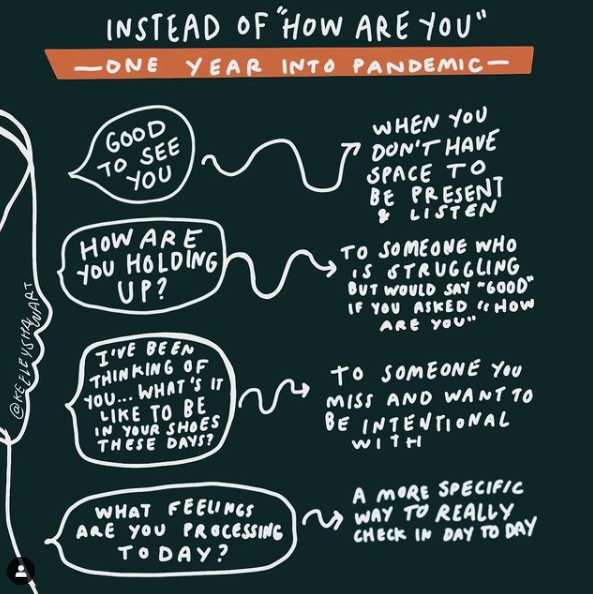 INSTEAD OF "HOW ARE YOU"
—ONE YEAR INTO PANDEMIC—
GOOD
TO SEE
YOU
WHEN YOU
DON'T HAVE
SPACE TO
BE PRESENT
& LISTEN
HOW ARE
YOU HOLDING
UP?
TO SOMEONE WHO
IS STRUGGLING
BUT WOULD SAY "GOOD"
IF YOU ASKED "HOW
ARE YOU"
I'VE BEEN
THINKING OF
YOU... WHAT'S IT
LIKE TO BE
IN YOUR SHOES
THESE DAYS?
TO SOMEONE YOU
MISS AND WANT TO
BE INTENTIONAL
WITH
WHAT FEELINGS
ARE YOU PROCESSING
TODAY?
A MORE SPECIFIC
WAY TO REALLY
CHECK IN DAY TO DAY
@KEELEYSHAWART